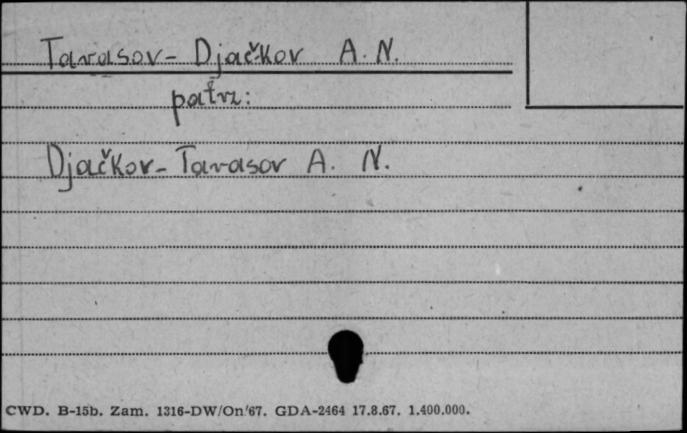 Tarasov- Djačkov A. N.
patrz:
Djačkov- Tarasov A. N.
CWD. B-15b. Zam. 1316-DW/On/67. GDA-2464 17.8.67. 1.400.000.